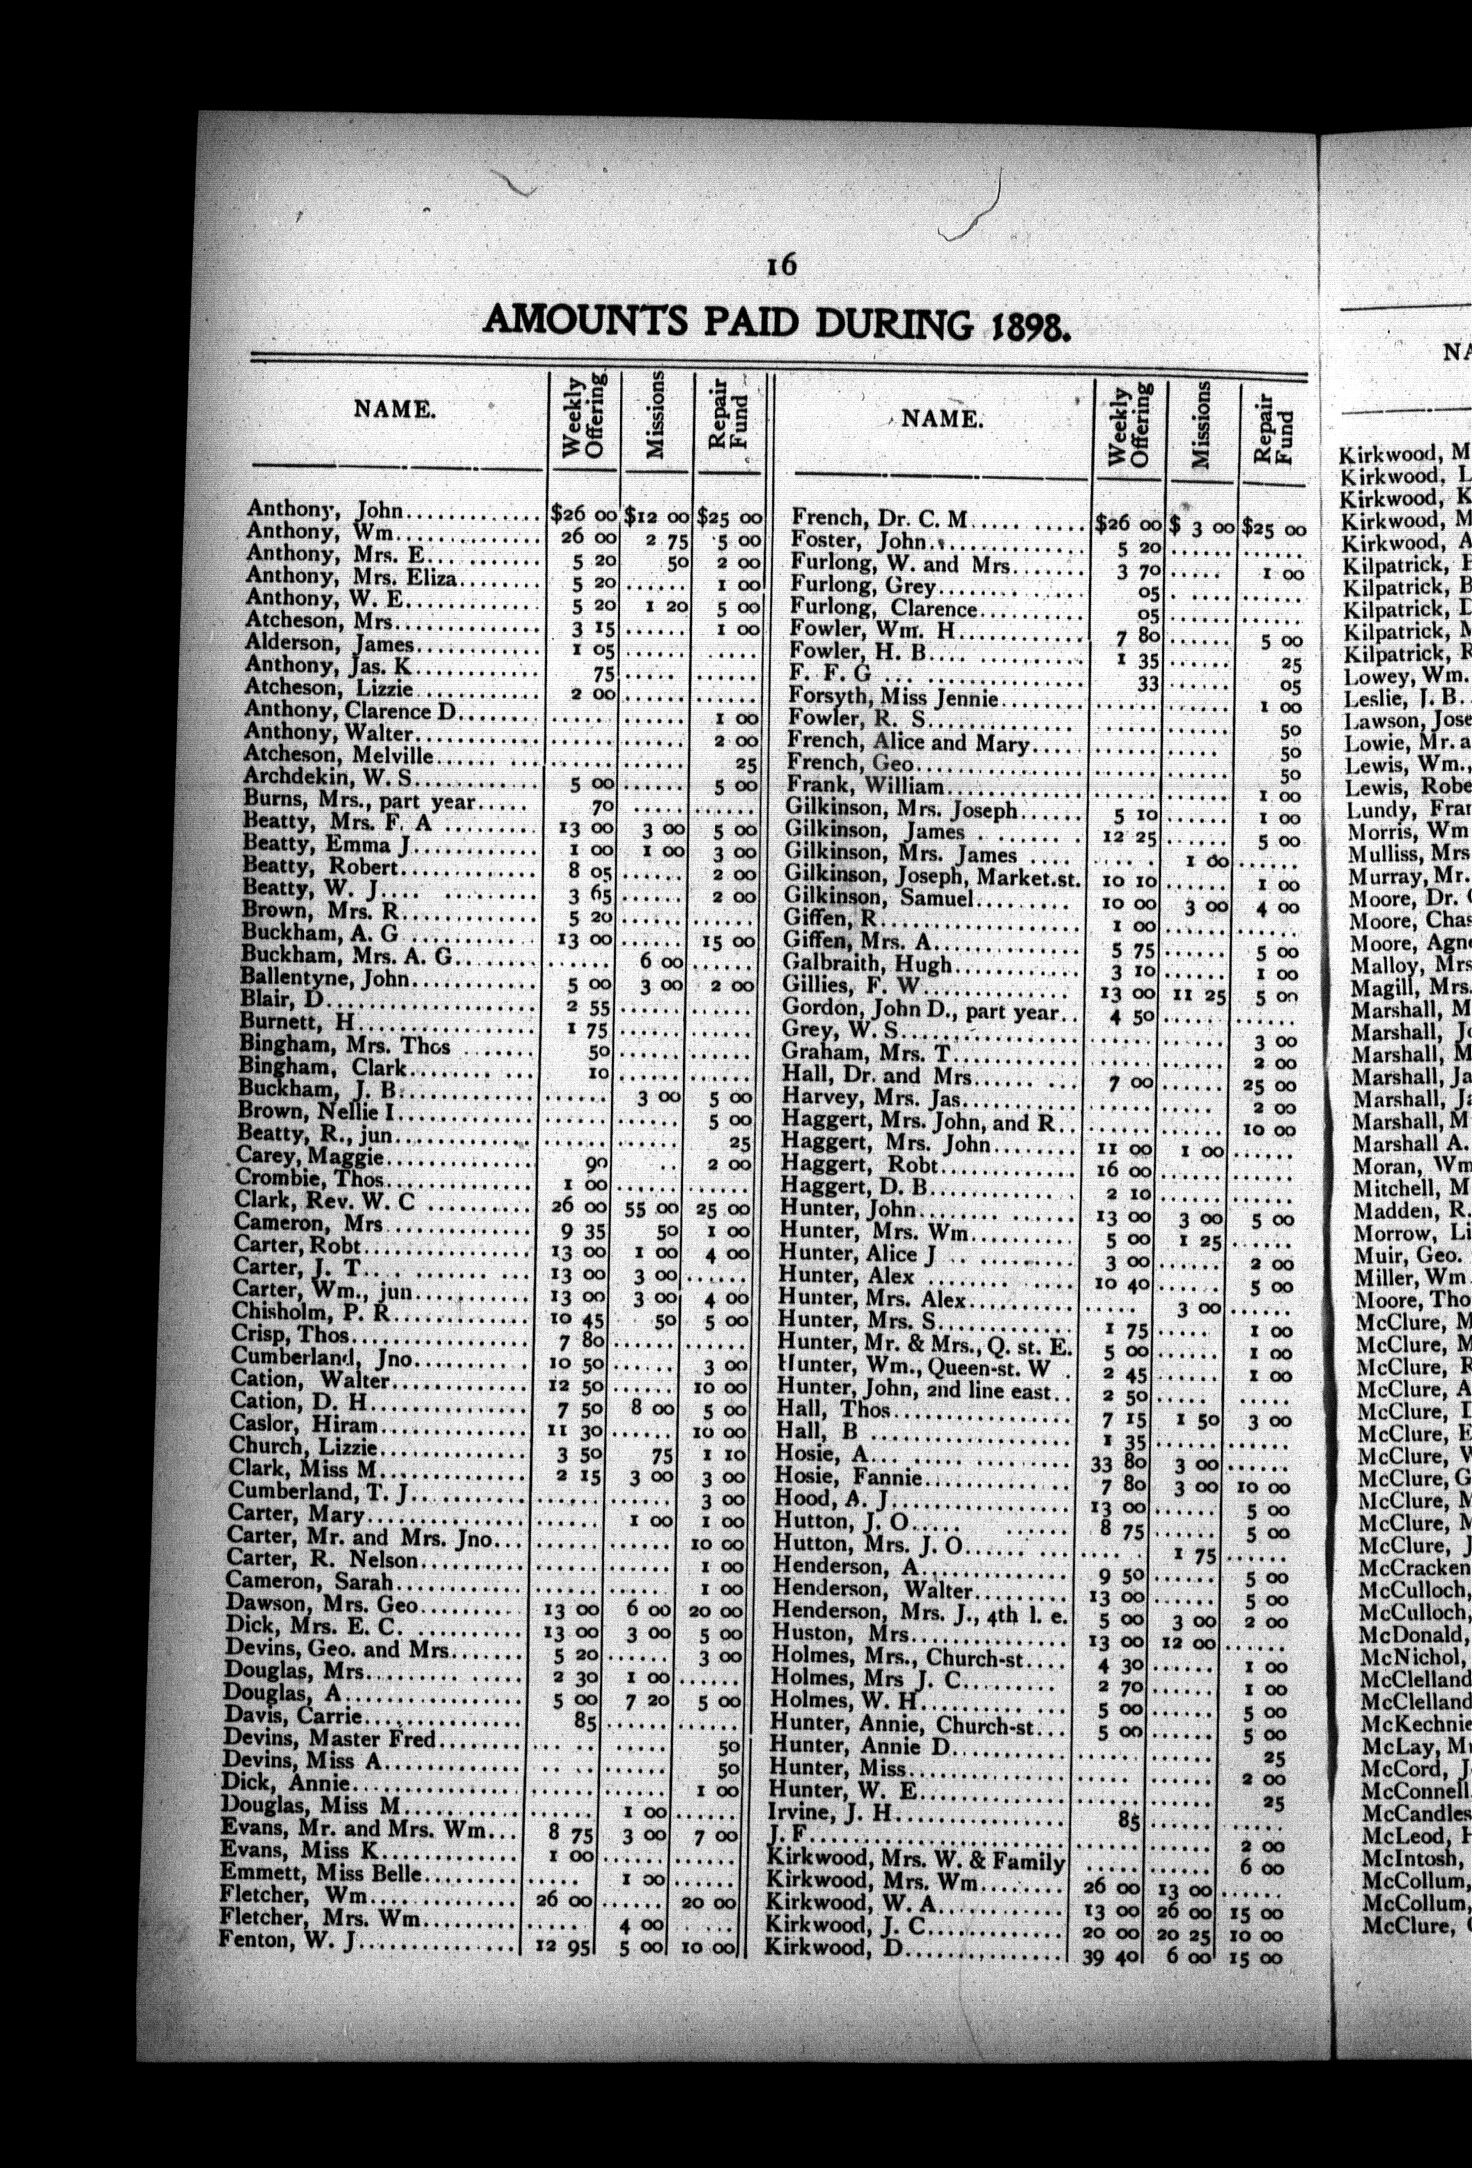 16
AMOUNTS PAID DURING 1898.
NAME. Weekly Offering. Missions Repair Fund
Anthony, John............ $26 00 $12 00 $25 00
Anthony, Wm............ 26 00 2 75 5 00
Anthony, Mrs. E........... 5 20 50 2 00
Anthony, Mrs. Eliza........ 5 20 ...... 1 00
Anthony, W. E............ 5 20 1 20 5 00
Atcheson, Mrs............ 3 15 ...... 1 00
Alderson, James........... 1 05 ...... .....
Anthony, Jas. K........... 75 ..... ......
Atcheson, Lizzie........... 2 00 ...... ......
Anthony, Clarence D....... ...... ...... 1 00
Anthony, Walter........... ...... ...... 2 00
Atcheson, Melville...... ... ...... ...... 25
Archdekin, W. S........... 5 00 ...... 5 00
Burns, Mrs., part year..... 70 ..... ......
Beatty, Mrs. F. A ......... 13 00 3 00 5 00
Beatty, Emma J........... 1 00 1 00 3 00
Beatty, Robert............ 8 05 ...... 2 00
Beatty, W. J.... ......... 3 65 ...... 2 00
Brown, Mrs. R............ 5 20 ...... ......
Buckham, A. G ........... 13 00 ...... 15 00
Buckham, Mrs. A. G....... ...... 6 00 ......
Ballentyne, John........... 5 00 3 00 2 00
Blair, D.................. 2 55 ...... ......
Burnett, H............... 1 75 ...... ......
Bingham, Mrs. Thos ...... 50 ...... ......
Bingham, Clark........ ... 10 ...... ......
Buckham, J. B............ ...... 3 00 5 00
Brown, Nellie I............ ...... ...... 5 00
Beatty, R., jun............ ...... ...... 25
Carey, Maggie............. 90 .. 2 00
Crombie, Thos............. 1 00 ...... ......
Clark, Rev. W. C ......... 26 00 55 00 25 00
Cameron, Mrs............. 9 35 50 1 00
Carter, Robt............... 13 00 1 00 4 00
Carter, J. T.... ....... ... 13 00 3 00 ......
Carter, Wm., jun........... 13 00 3 00 4 00
Chisholm, P. R............ 10 45 50 5 00
Crisp, Thos................ 7 80 ...... ......
Cumberland, Jno.......... 10 50 ...... 3 00
Cation, Walter............ 12 50 ...... 10 00
Cation, D. H.............. 7 50 8 00 5 00
Caslor, Hiram............. 11 30 ...... 10 00
Church, Lizzie............. 3 50 75 1 10
Clark, Miss M............. 2 15 3 00 3 00
Cumberland, T. J.......... ...... ...... 3 00
Carter, Mary.............. ...... 1 00 1 00
Carter, Mr. and Mrs. Jno... ...... ...... 10 00
Carter, R. Nelson.......... ...... ...... 1 00
Cameron, Sarah............ ...... ...... 1 00
Dawson, Mrs. Geo......... 13 00 6 00 20 00
Dick, Mrs. E. C. .......... 13 00 3 00 5 00
Devins, Geo. and Mrs...... 5 20 ...... 3 00
Douglas, Mrs............. 2 30 1 00 ......
Douglas, A................ 5 00 7 20 5 00
Davis, Carrie.............. 85 ...... ......
Devins, Master Fred........ ... .. ..... 50
Devins, Miss A............ .. .. ...... 50
Dick, Annie............... ...... ...... 1 00
Douglas, Miss M........... ...... 1 00 ......
Evans, Mr. and Mrs. Wm... 8 75 3 00 7 00
Evans, Miss K............ 1 00 ...... ......
Emmett, Miss Belle........ ..... 1 00 ......
Fletcher, Wm............. 26 00 ...... 20 00
Fletcher, Mrs. Wm......... ..... 4 00 .. ...
Fenton, W. J.............. 12 95 5 00 10 00
NAME. Weekly Offering Missions Repair Fund
French, Dr. C. M.......... $26 00 $ 3 00 $25 00
Foster, John.............. 5 20 ...... ......
Furlong, W. and Mrs....... 3 70 ..... 1 00
Furlong, Grey............. 05 ..... ......
Furlong, Clarence.......... 05 ...... ......
Fowler, Wm. H........... 7 80 ...... 5 00
Fowler, H. B.... ......... 1 35 ...... 25
F. F. G ... .............. 33 ...... 05
Forsyth, Miss Jennie....... ...... ...... 1 00
Fowler, R. S.............. ...... ...... 50
French, Alice and Mary.... ...... ..... 50
French, Geo............... ...... ...... 50
Frank, William............ ...... ...... 1 00
Gilkinson, Mrs. Joseph...... 5 10 ...... 1 00
Gilkinson, James . ...... . 12 25 ...... 5 00
Gilkinson, Mrs. James .... .. .. 1 00 ......
Gilkinson, Joseph, Market.st. 10 10 ...... 1 00
Gilkinson, Samuel......... 10 00 3 00 4 00
Giffen, R................. 1 00 ...... ......
Giffen, Mrs. A............. 5 75 ...... 5 00
Galbraith, Hugh........... 3 10 ...... 1 00
Gillies, F. W.............. 13 00 11 25 5 00
Gordon, John D., part year.. 4 50 ...... ......
Grey, W. S................ ...... ...... 3 00
Graham, Mrs. T........... ...... ...... 2 00
Hall, Dr. and Mrs...... ... 7 00 ...... 25 00
Harvey, Mrs. Jas........... ...... ...... 2 00
Haggert, Mrs. John, and R.. ...... ...... 10 00
Haggert, Mrs. John........ 11 00 1 00 ......
Haggert, Robt............. 16 00 ...... ......
Haggert, D. B............. 2 10 ...... ......
Hunter, John........ ...... 13 00 3 00 5 00
Hunter, Mrs. Wm......... 5 00 1 25 ......
Hunter, Alice J ........... 3 00 ...... 2 00
Hunter, Alex ........ .... 10 40 ...... 5 00
Hunter, Mrs. Alex.......... ..... 3 00 ......
Hunter, Mrs. S............ 1 75 ..... 1 00
Hunter, Mr. & Mrs., Q. st. E. 5 00 ...... 1 00
Hunter, Wm., Queen-st. W . 2 45 ...... 1 00
Hunter, John, 2nd line east.. 2 50 ..... .....
Hall, Thos................ 7 15 1 50 3 00
Hall, B .................. 1 35 ...... ......
Hosie, A... .............. 33 80 3 00 ......
Hosie, Fannie............. 7 80 3 00 10 00
Hood, A. J................ 13 00 ...... 5 00
Hutton, J. O..... ...... 8 75 ...... 5 00
Hutton, Mrs. J. O...... ... .... . 1 75 ......
Henderson, A.............. 9 50 ...... 5 00
Henderson, Walter......... 13 00 ...... 5 00
Henderson, Mrs. J., 4th l. e. 5 00 3 00 2 00
Huston, Mrs.............. 13 00 12 00 ......
Holmes, Mrs., Church-st.... 4 30 ...... 1 00
Holmes, Mrs J. C......... 2 70 ...... 1 00
Holmes, W. H......... ... 5 00 ...... 5 00
Hunter, Annie, Church-st... 5 00 ...... 5 00
Hunter, Annie D.......... ...... ...... 25
Hunter, Miss.............. ..... ...... 2 00
Hunter, W. E............. ...... ...... 25
Irvine, J. H............... 85 ...... ......
J. F...................... ...... ...... 2 00
Kirkwood, Mrs. W. & Family ..... ...... 6 00
Kirkwood, Mrs. Wm........ 26 00 13 00 ......
Kirkwood, W. A........... 13 00 26 00 15 00
Kirkwood, J. C............ 20 00 20 25 10 00
Kirkwood, D.............. 39 40 6 00 15 00
Kirkwood, M
Kirkwood, L
Kirkwood, K
Kirkwood, M
Kirkwood, A
Kilpatrick,
Kilpatrick, B
Kilpatrick,
Kilpatrick,
Kilpatrick, R
Lowey, Wm.
Leslie, J. B.
Lawson, Jose
Lowie, Mr. a
Lewis, Wm.,
Lewis, Robe
Lundy, Fran
Morris, Wm
Mulliss, Mrs
Murray, Mr.
Moore, Dr.
Moore, Chas
Moore, Agne
Malloy, Mrs
Magill, Mrs.
Marshall, M
Marshall, Jo
Marshall, M
Marshall, Ja
Marshall, Ja
Marshall, M
Marshall A.
Moran, Wm
Mitchell, M
Madden, R.
Morrow, Li
Muir, Geo.
Miller, Wm
Moore, Tho
McClure, M
McClure, M
McClure, R
McClure, A
McClure,
McClure, E
McClure, W
McClure, G
McClure, M
McClure, M
McClure, J
McCracken
McCulloch,
McCulloch,
McDonald,
McNichol,
McClelland
McClelland
McKechnie
McLay, M
McCord, J
McConnell
McCandles
McLeod, H
McIntosh,
McCollum,
McCollum,
McClure,